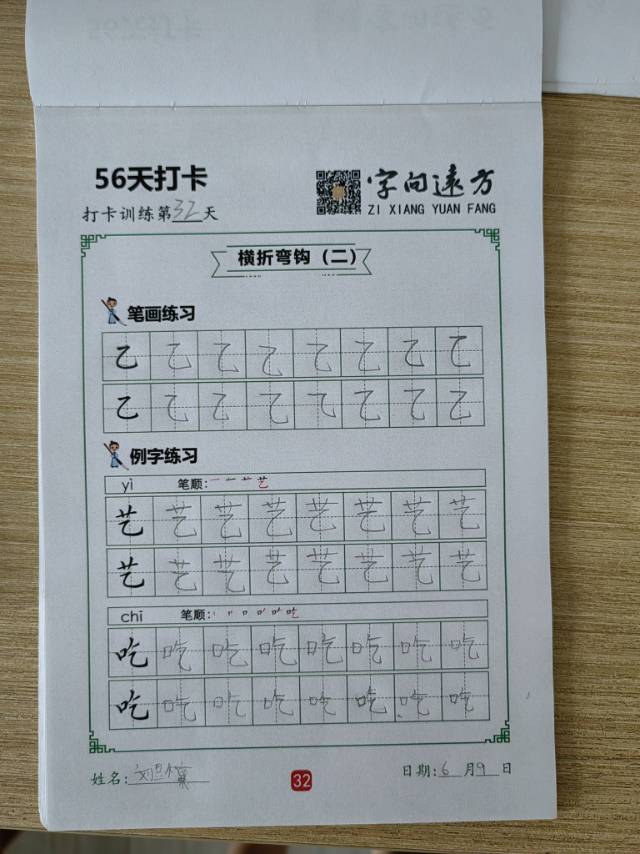 56天打卡
字向远方
打卡训练第32天
ZI XIANG YUAN FANG
横折弯钩（二）
笔画练习
乙 乙 乙 乙 乙 乙 乙 乙
乙 乙 乙 乙 乙 乙 乙 乙
例字练习
yì 笔顺：一 艹 艺
艺 艺 艺 艺 艺 艺 艺 艺
艺 艺 艺 艺 艺 艺 艺 艺
chī 笔顺：丨 口 吃
吃 吃 吃 吃 吃 吃 吃 吃
吃 吃 吃 吃 吃 吃 吃 吃
姓名：刘
32
日期：6月9日